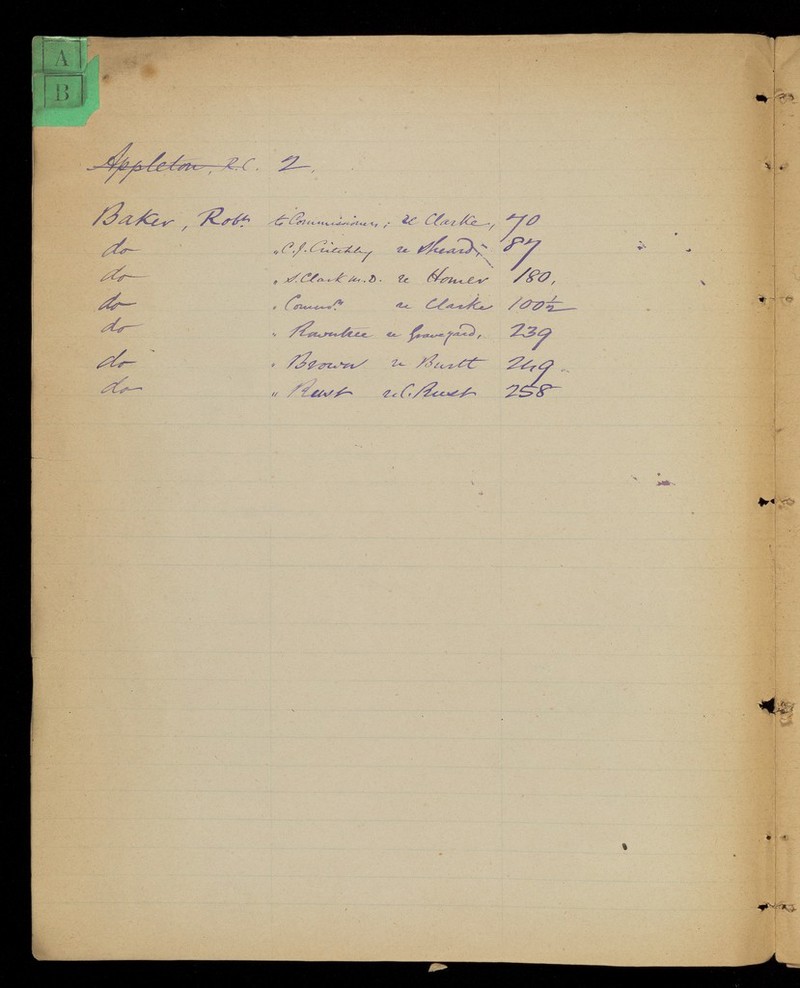 A
B
Appleton, R.C. 2.
Baker, Robt. to Commissioners; re Clarke, 70
do " C.J. re Sheard, 87
do " S. Clark M.D. re Homer 180.
do " re Clarke 100½
do " Rowntree re Graveyard, 239
do " Brown re Burtt 249.
do " Rust re C. Rust 258